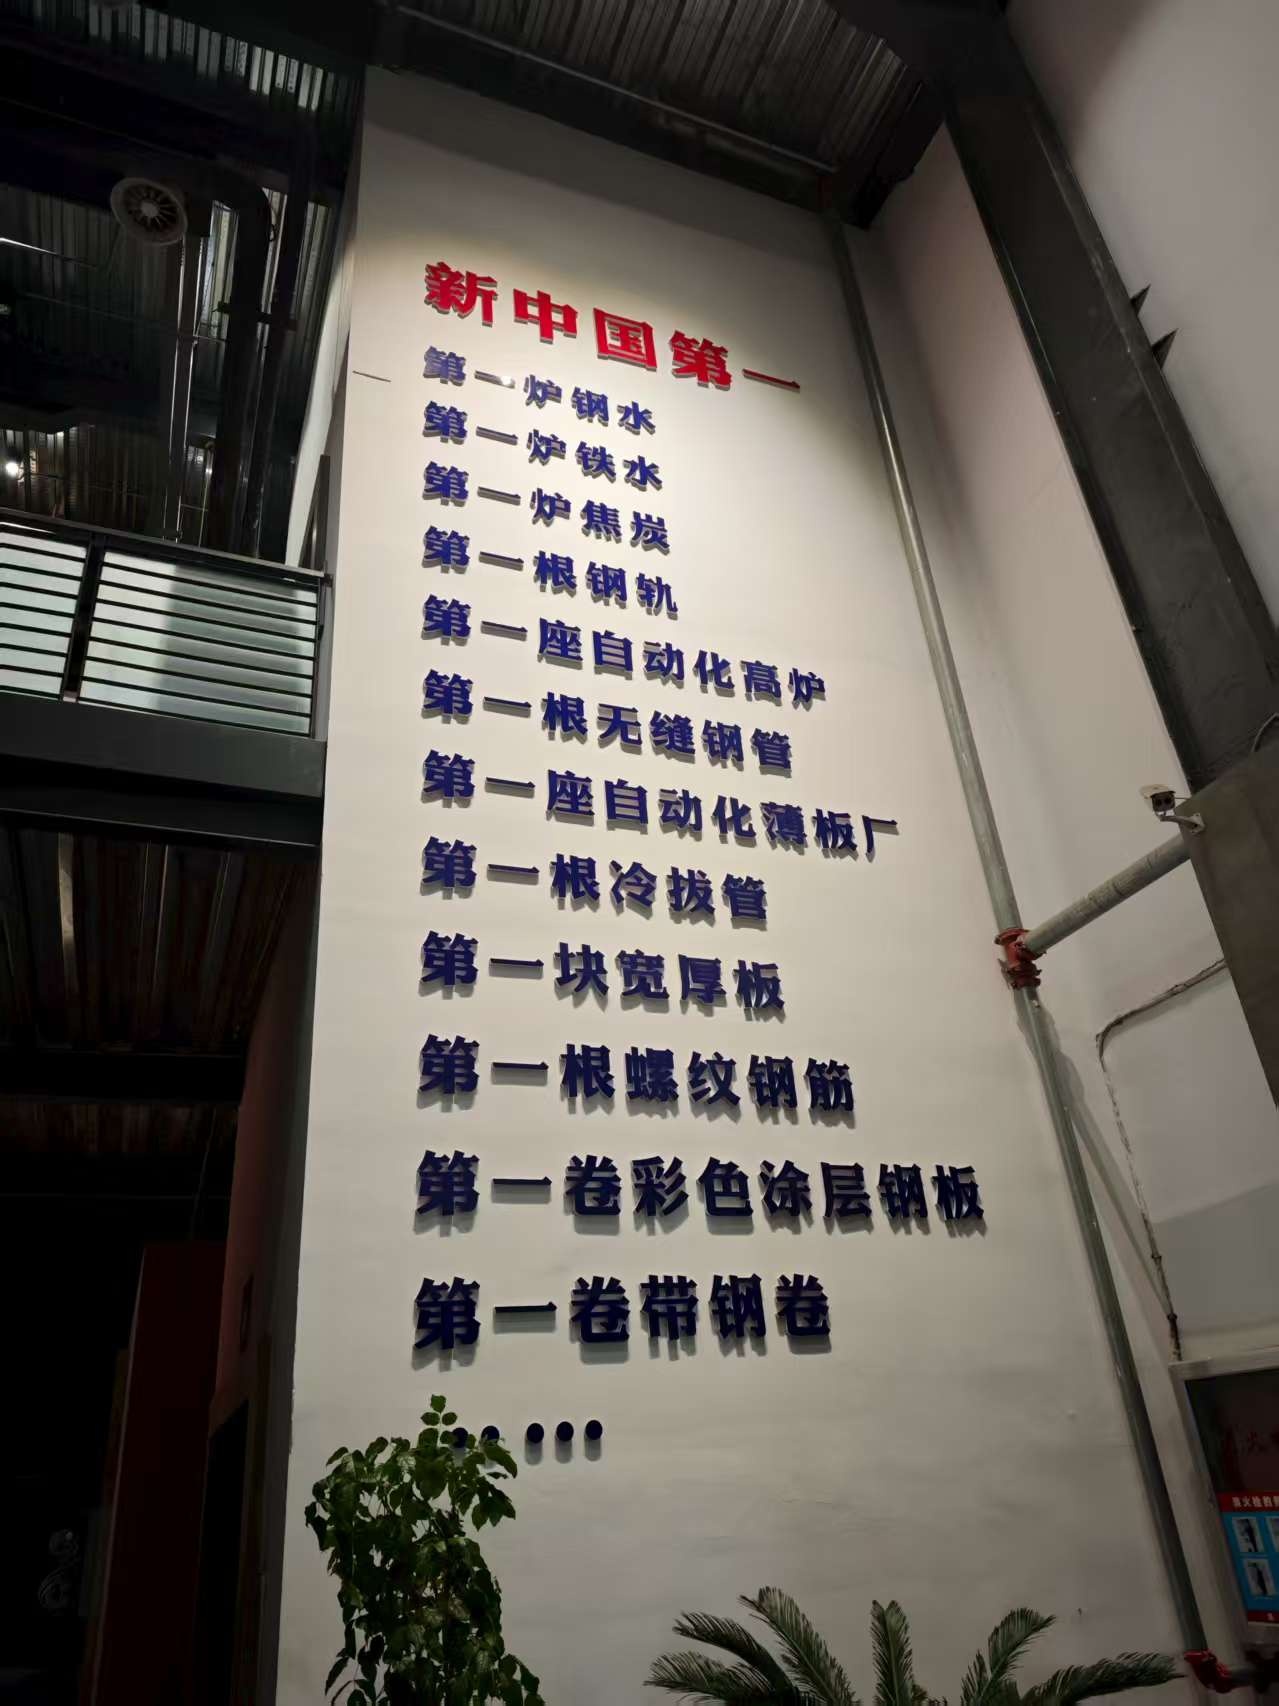 新中国第一
第一炉钢水
第一炉铁水
第一炉焦炭
第一根钢轨
第一座自动化高炉
第一根无缝钢管
第一座自动化薄板厂
第一根冷拔管
第一块宽厚板
第一根螺纹钢筋
第一卷彩色涂层钢板
第一卷带钢卷
……